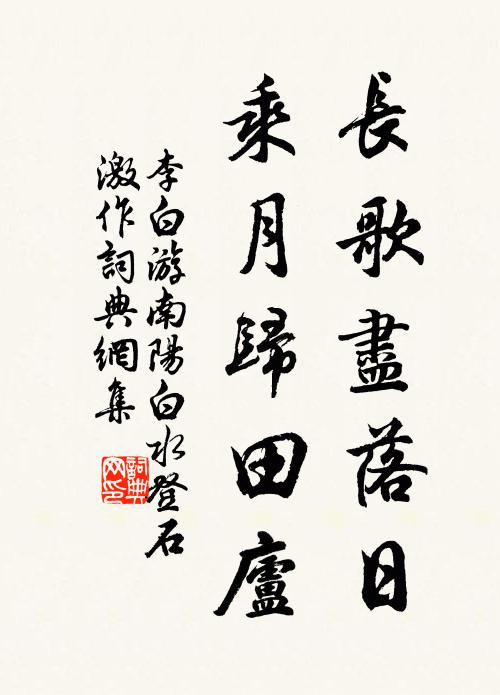 長歌盡落日
乘月歸田廬
李白游南陽白水登石
激作詞典網集
詞典網印